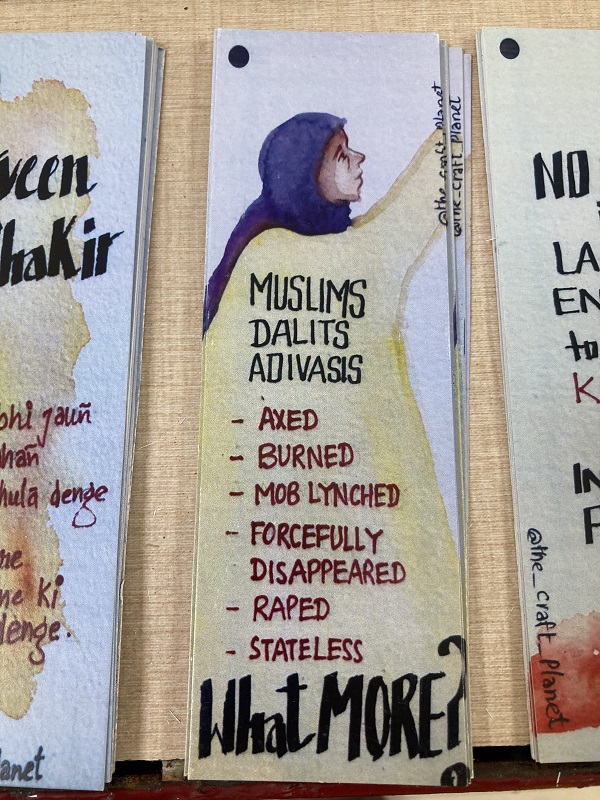 veen
haKir
bhi jauñ
hañ
hula denge
ne
ne ki
denge.
lanet
@the_craft_planet
@the_craft_planet
MUSLIMS
DALITS
ADIVASIS
- AXED
- BURNED
- MOB LYNCHED
- FORCEFULLY
DISAPPEARED
- RAPED
- STATELESS
What MORE?
NO
LA
EN
to
K
IN
@the_craft_planet